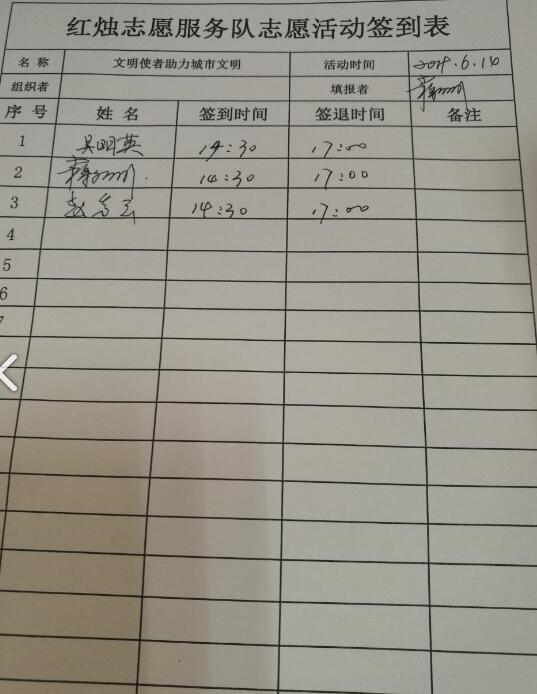 红烛志愿服务队志愿活动签到表
名称 文明使者助力城市文明 活动时间 2019.6.14
组织者 填报者
序号 姓名 签到时间 签退时间 备注
1 吴明英 14:30 17:00
2 14:30 17:00
3 14:30 17:00
4
5
6
7